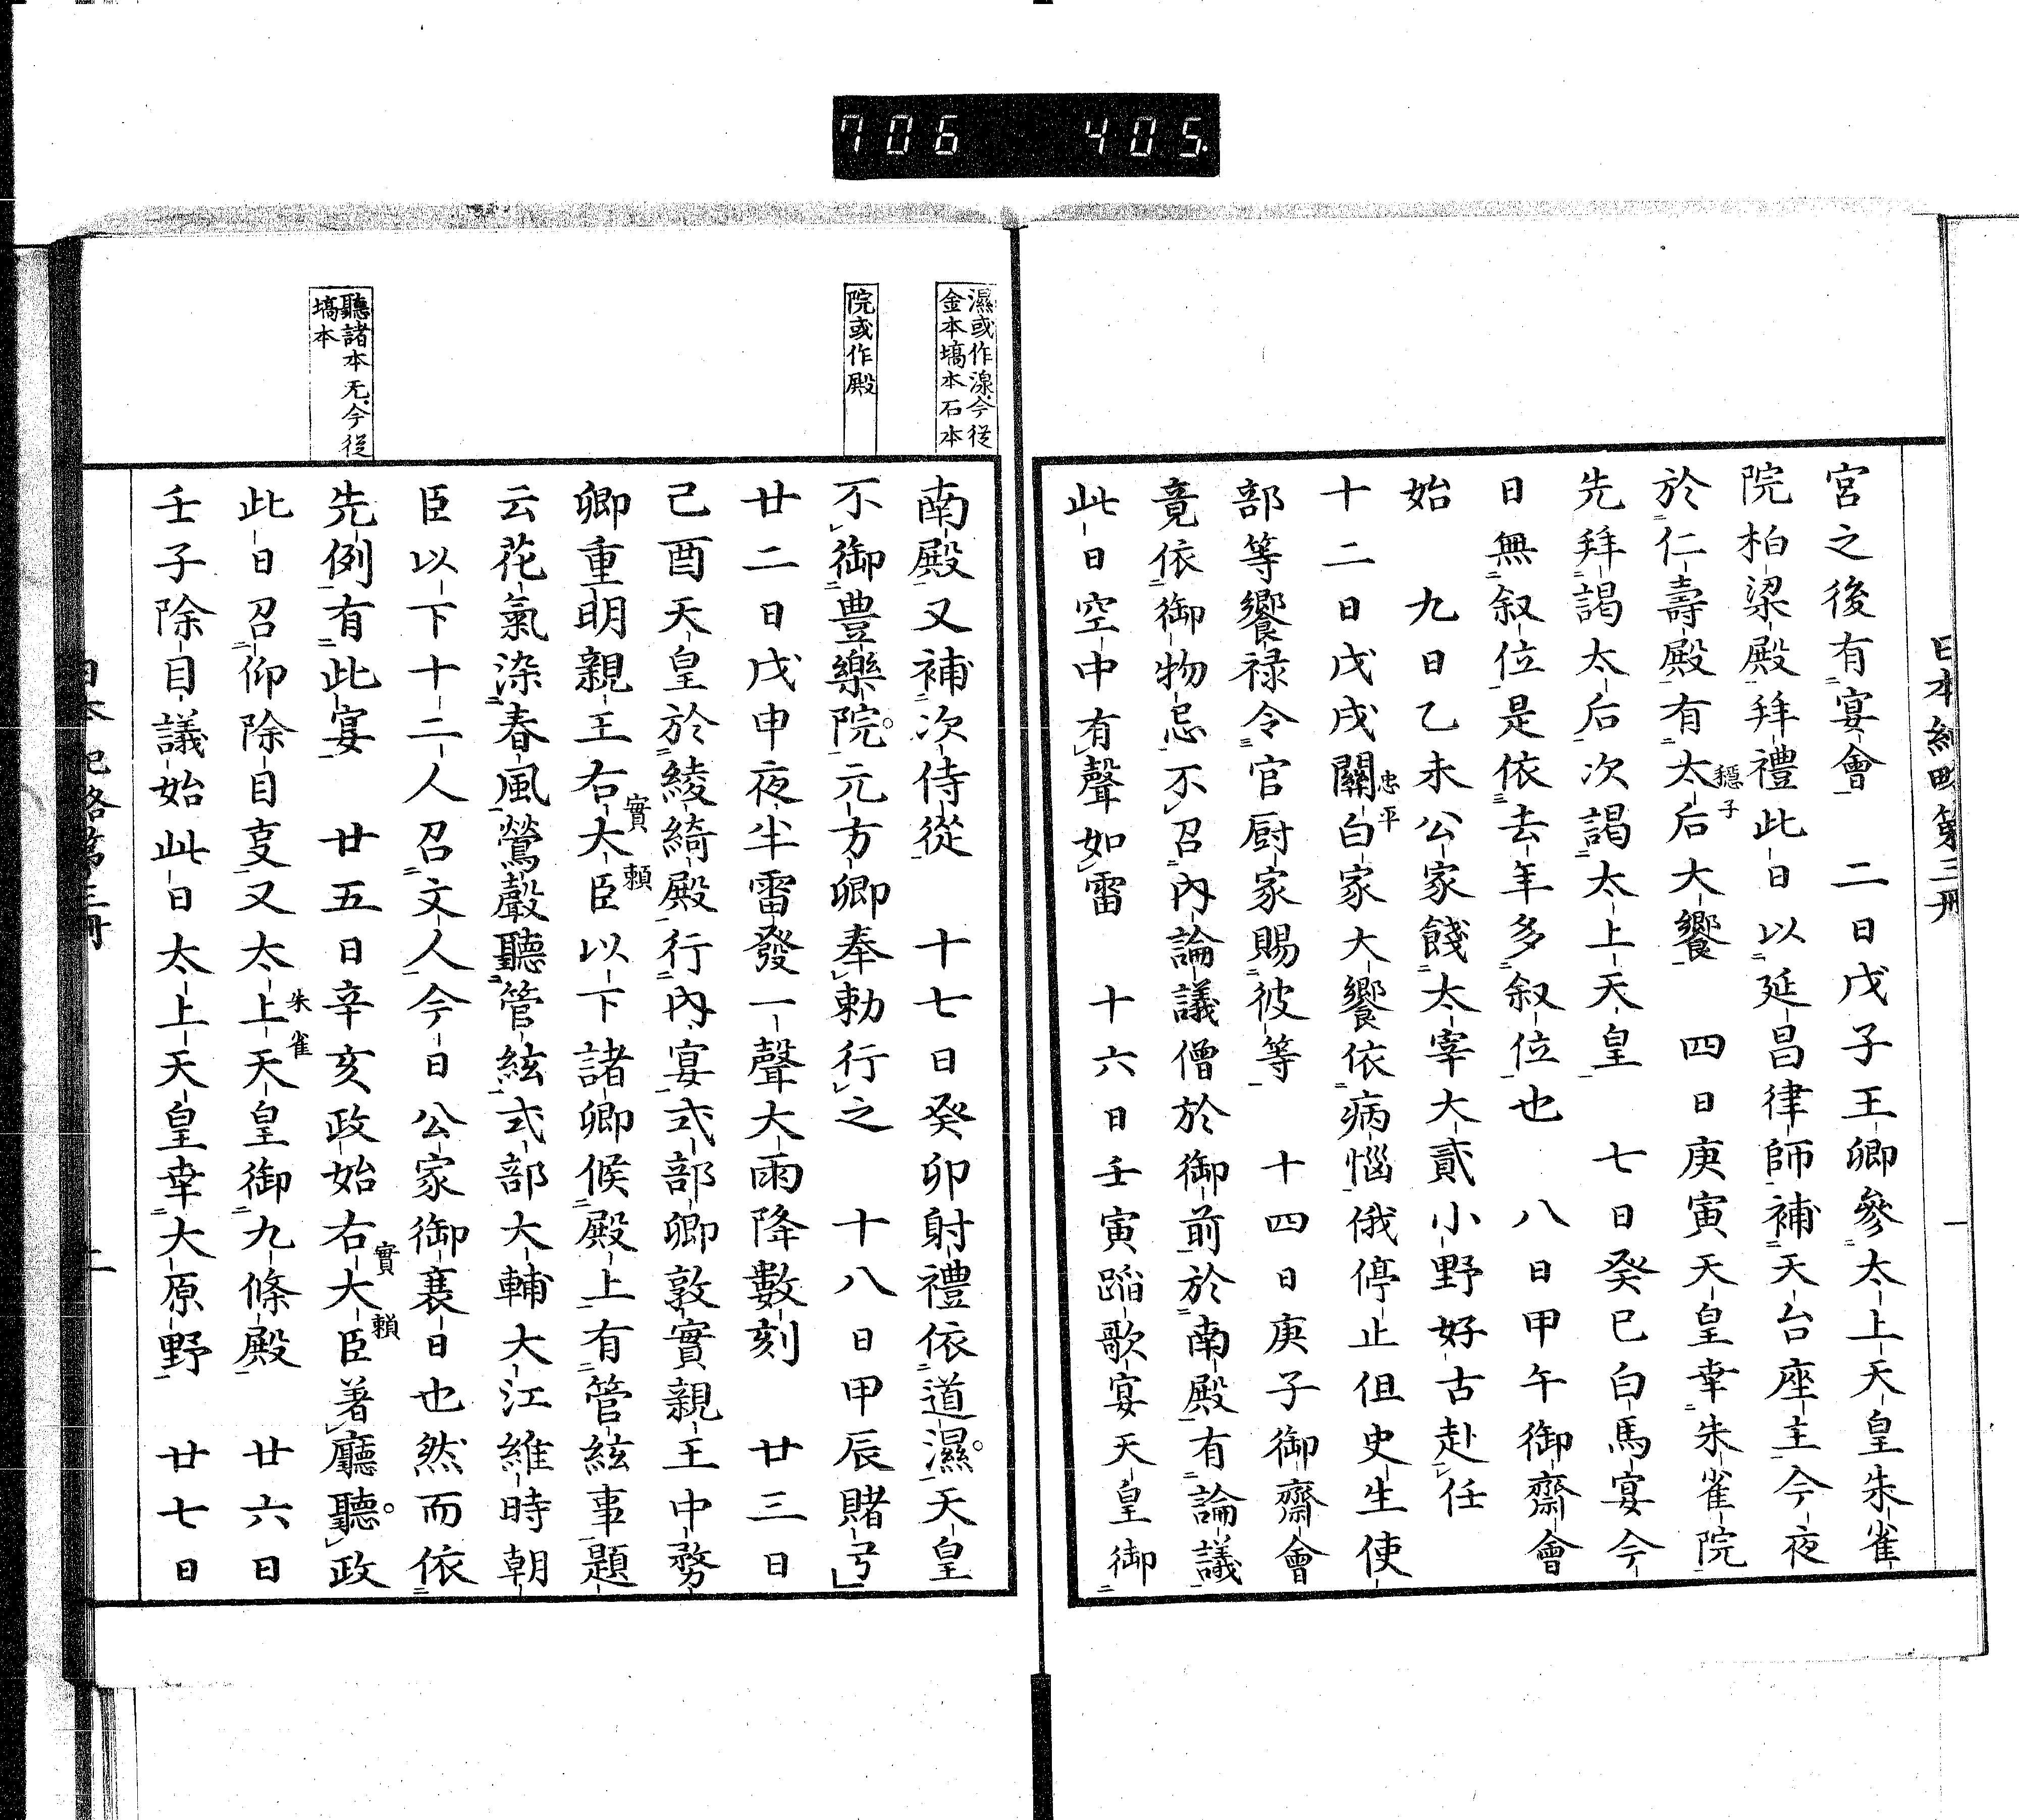 706 405.
日本紀略第三冊
一
宮之後有宴會 二日戊子王卿參太上天皇朱雀
院柏梁殿拜禮此日以延昌律師補天台座主今夜
於仁壽殿有太后大饗 四日庚寅天皇幸朱雀院
穩子
先拜謁太后次謁太上天皇 七日癸巳白馬宴今
日無叙位是依去年多叙位也 八日甲午御齋會
始 九日乙未公家餞太宰大貳小野好古赴任
十二日戊戌關白家大饗依病惱俄停止但史生使
忠平
部等饗祿令官厨家賜彼等 十四日庚子御齋會
竟依御物忌不召內論議僧於御前於南殿有論議
此日空中有聲如雷 十六日壬寅蹈歌宴天皇御
濕或作湶今從
金本塙本石本
院或作殿
聽諸本无今從
塙本
南殿又補次侍從 十七日癸卯射禮依道濕天皇
不御豊樂院元方卿奉勅行之 十八日甲辰賭弓
廿二日戊申夜半雷發一聲大雨降數刻 廿三日
己酉天皇於綾綺殿行內宴式部卿敦實親王中務
卿重明親王右大臣以下諸卿候殿上有管絃事題
實賴
云花氣染春風鶯聲聽管絃式部大輔大江維時朝
臣以下十二人召文人今日公家御衰日也然而依
先例有此宴 廿五日辛亥政始右大臣著廳聽政
實賴
此日召仰除目㕝又太上天皇御九條殿 廿六日
朱雀
壬子除目議始此日太上天皇幸大原野 廿七日
日本紀略第三冊
二